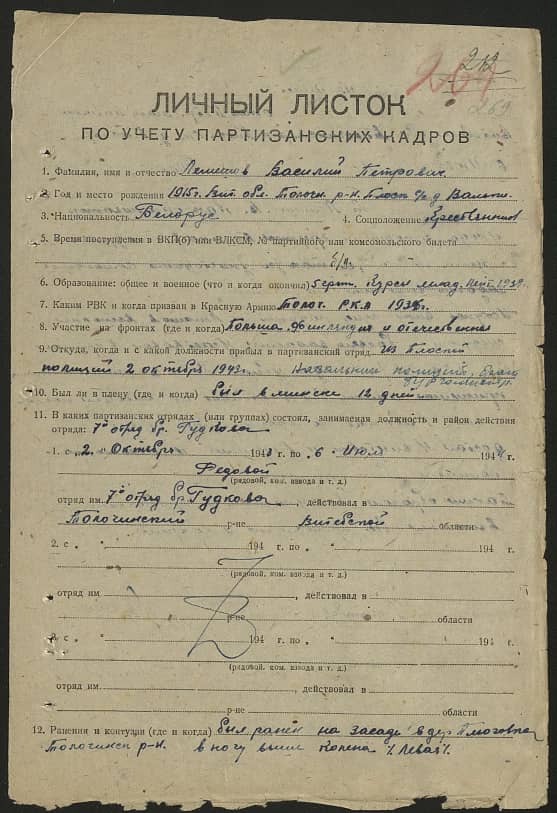 212
269
269
ЛИЧНЫЙ ЛИСТОК
ПО УЧЕТУ ПАРТИЗАНСКИХ КАДРОВ
1. Фамилия, имя и отчество Лемешов Василий Петрович
2. Год и место рождения 1915г. Вит. обл. Толоч. р-н. Плоск с/с д.
3. Национальность Белорус 4. Соцположение Крестьянин
5. Время поступления в ВКП(б) или ВЛКСМ, № партийного или комсомольского билета
б/п.
6. Образование: общее и военное (что и когда окончил) Курсы млад.
7. Каким РВК и когда призван в Красную Армию Толоч. РКА
8. Участие на фронтах (где и когда) Польша финляндия и отечествены
9. Откуда, когда и с какой должности прибыл в партизанский отряд из Плоской
полиций 2 октября Начальник полиций,
10. Был ли в плену (где и когда) был в минске 12 дней
11. В каких партизанских отрядах (или группах) состоял, занимаемая должность и район действия
отряда: 7й отряд бр. Гудкова
1. с „2„ Октября 1943 г. по „6„ Июля 1944 г.
Редовой
(рядовой, ком. взвода и т. д.)
отряд им. 7й отряд бр. Гудкова, действовал в
Толочинский р-не Витебской области
2. с „ „ 194 г. по „ „ 194 г.
(рядовой, ком. взвода и т. д.)
отряд им. , действовал в
р-не области
3. с „ „ 194 г. по „ „ 194 г.
(рядовой, ком. взвода и т. д.)
отряд им. , действовал в
р-не области
12. Ранения и контузии (где и когда) был ранен на засаде в дер.
Толочинск р-н. в ногу выше колена